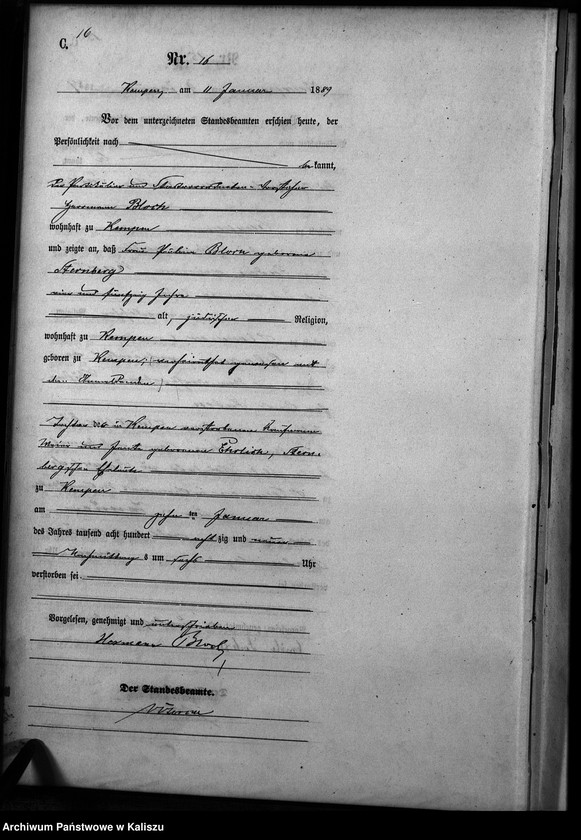 16
C.
Nr. 16
Kempen, am 11 Januar 1889
Vor dem unterzeichneten Standesbeamten erschien heute, der
Persönlichkeit nach
bekannt,
Der Partikulier und Stadtverordneten-Vorsteher
Herrmann Bloch
wohnhaft zu Kempen
und zeigte an, daß Frau Paulina Bloch geborene
Sternberg
ein und fünfzig Jahre
alt, jüdischer Religion,
wohnhaft zu Kempen
geboren zu Kempen, (verheirathet gewesen mit
dem
Tochter des in Kempen verstorbenen Kaufmann
Meier und geborenen Ehrlich, Stern-
bergschen Eheleute
zu Kempen
am zehnten Januar
des Jahres tausend acht hundert achtzig und neun
Nachmittags um sechs Uhr
verstorben sei.
Vorgelesen, genehmigt und unterschrieben
Hermann Bloch
Der Standesbeamte.
Archiwum Państwowe w Kaliszu